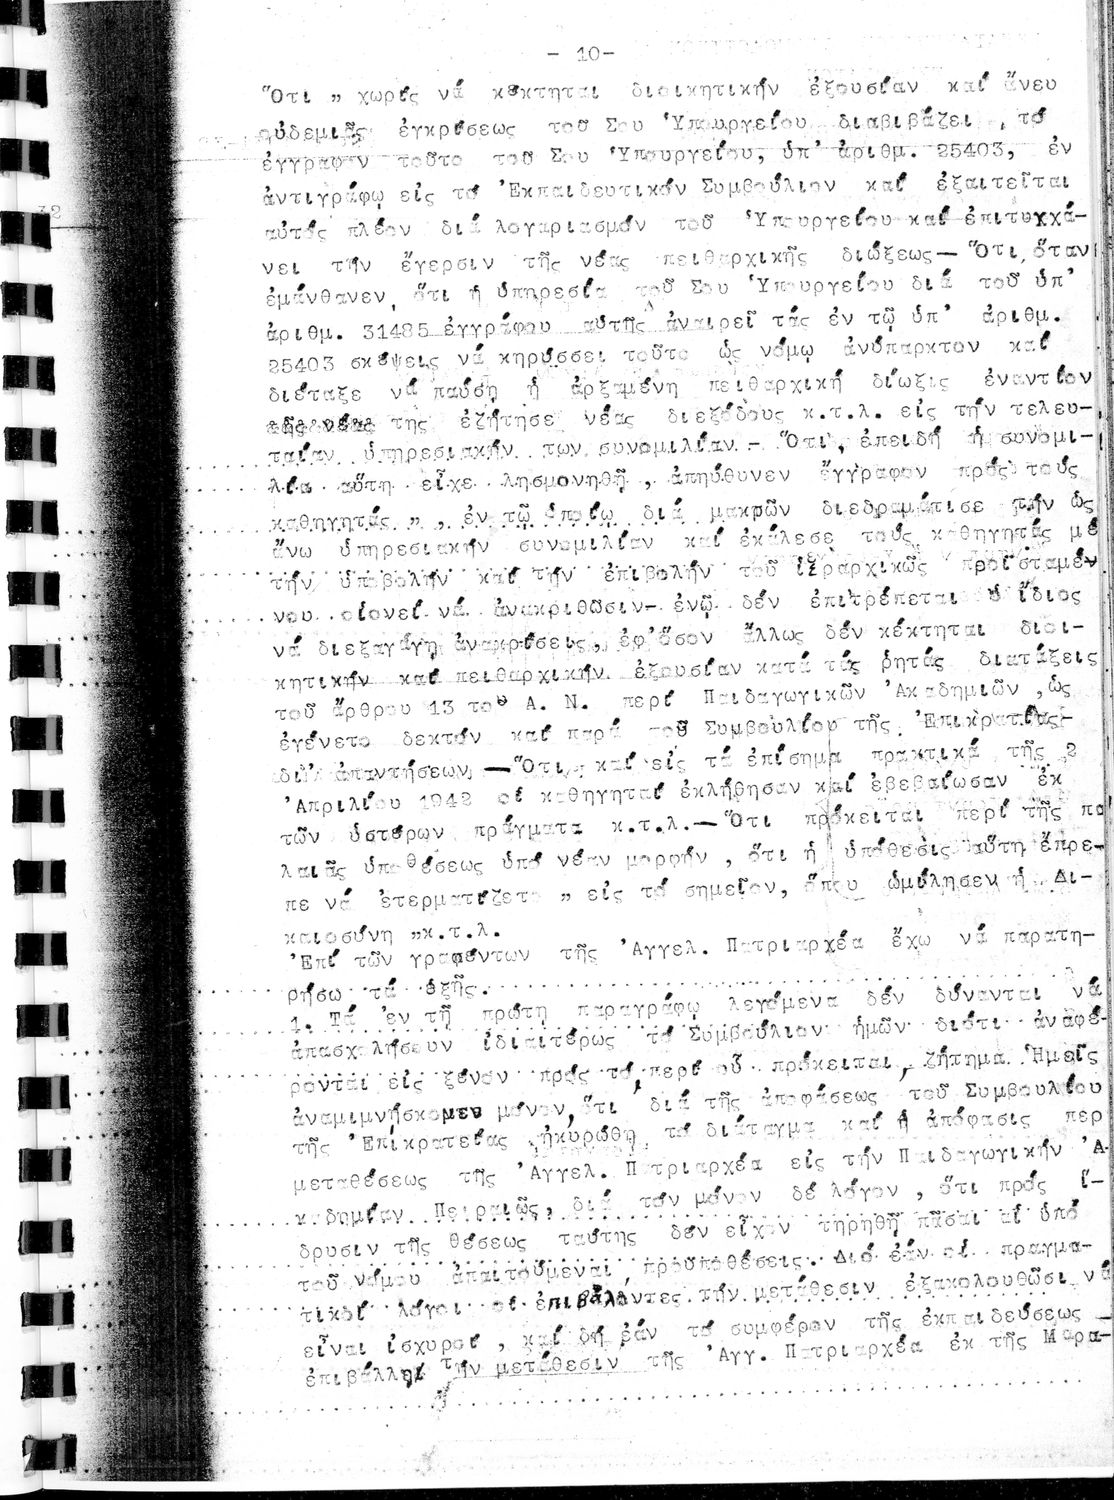 - 10-
Ὅτι „ χωρίς νά κέκτηται διοικητικήν ἐξουσίαν καί ἄνευ
οὐδεμιᾶς ἐγκρίσεως τοῦ Σου Ὑπουργείου διαβιβάζει , τό
ἔγγραφον τοῦτο τοῦ Σου Ὑπουργείου, ὑπ' ἀριθμ. 25403, ἐν
ἀντιγράφῳ είς τό Ἐκπαιδευτικόν Συμβούλιον καί ἐξαιτεῖται
32
αὐτός πλέον διά λογαριασμόν τοῦ Ὑπουργείου καί ἐπιτυγχά-
νει τήν ἔγερσιν τῆς νέας πειθαρχικῆς διώξεως— Ὅτι, ὅταν
ἐμάνθανεν, ὅτι ἡ ὑπηρεσία τοῦ Σου Ὑπουργείου διά τοῦ ὑπ'
ἀριθμ. 31485 ἐγγράφου αὐτῆς ἀναιρεῖ τάς ἐν τῷ ὑπ' ἀριθμ.
25403 σκέψεις νά κηρύσσει τοῦτο ὡς νόμῳ ἀνύπαρκτον καί
διέταξε νά παύσῃ ἡ ἀρξαμένη πειθαρχική δίωξις ἐναντίον
της ἐζήτησε νέας διεξόδους κ.τ.λ. είς τήν τελευ-
ταίαν ὑπηρεσιακήν των συνομιλίαν - Ὅτι, ἐπειδή ἡ συνομι-
λία αὕτη εἶχε λησμονηθῆ , ἀπηύθυνεν ἔγγραφον πρός τούς
καθηγητάς „ , ἐν τῷ ὁποίῳ διά μακρῶν διεδραμάτισε τήν ὡς
ἄνω ὑπηρεσιακήν συνομιλίαν καί ἐκάλεσε τούς καθηγητάς μέ
τήν ὑποβολήν καί τήν ἐπιβολήν τοῦ ἱεραρχικῶς προϊσταμέν
νου οἱονεί νά ἀνακριθῶσιν- ἐνῷ δέν ἐπιτρέπεται ὁ ἴδιος
νά διεξαγάγῃ ἀνακρίσεις, ἐφ'ὅσον ἄλλως δέν κέκτηται διοι-
κητικήν καί πειθαρχικήν ἐξουσίαν κατά τάς ρητάς διατάξεις
τοῦ ἄρθρου 13 τοῦ Α. Ν. περί Παιδαγωγικῶν Ἀκαδημιῶν ,ὡς
ἐγένετο δεκτόν καί παρά τοῦ Συμβουλίου τῆς Ἐπικρατείας-
δι' ἀπαντήσεων —Ὅτι, καί είς τά ἐπίσημα πρακτικά τῆς 2
Ἀπριλίου 1942 οἱ καθηγηταί ἐκλήθησαν καί ἐβεβαίωσαν ἐκ
τῶν ὑστέρων πράγματα κ.τ.λ.— Ὅτι πρόκειται περί τῆς πα
λαιᾶς ὑποθέσεως ὑπό νέαν μορφήν , ὅτι ἡ ὑπόθεσις αὕτη ἔπρε-
πε νά ἐτερματίζετο „ είς τό σημεῖον, ὅπου ὡμίλησεν ἡ Δι-
καιοσύνη „κ.τ.λ.
Ἐπί τῶν γραφέντων τῆς Ἀγγελ. Πατριαρχέα ἔχω νά παρατη-
ρήσω τά ἑξῆς.
1. Τά ἐν τῇ πρώτῃ παραγράφῳ λεγόμενα δέν δύνανται νά
ἀπασχολήσουν ἰδιαιτέρως τό Συμβούλιον ἡμῶν διότι ἀναφέ-
ρονται είς ξένον πρός τό,περί οὗ πρόκειται, ζήτημα. Ἡμεῖς
ἀναμιμνήσκομεν μόνον, ὅτι διά τῆς ἀποφάσεως τοῦ Συμβουλίου
τῆς Ἐπικρατείας ἠκυρώθη τό διάταγμα καί ἡ ἀπόφασις περ
μεταθέσεως τῆς Ἀγγελ. Πατριαρχέα είς τήν Παιδαγωγικήν Ἀ-
καδημίαν Πειραιῶς, διά τόν μόνον δέ λόγον , ὅτι πρός ἵ-
δρυσιν τῆς θέσεως ταύτης δέν εἶχον τηρηθῆ πᾶσαι αἱ ὑπό
τοῦ νόμου ἀπαιτούμεναι προϋποθέσεις. Διό ἐάν οἱ πραγμα-
τικοί λόγοι οἱ ἐπιβάλοντες τήν μετάθεσιν ἐξακολουθῶσι νά
εἶναι ἰσχυροί , καί δή ἐάν τό συμφέρον τῆς ἐκπαιδεύσεως
ἐπιβάλλῃ τήν μετάθεσιν τῆς Ἀγγ. Πατριαρχέα ἐκ τῆς Μαρα-